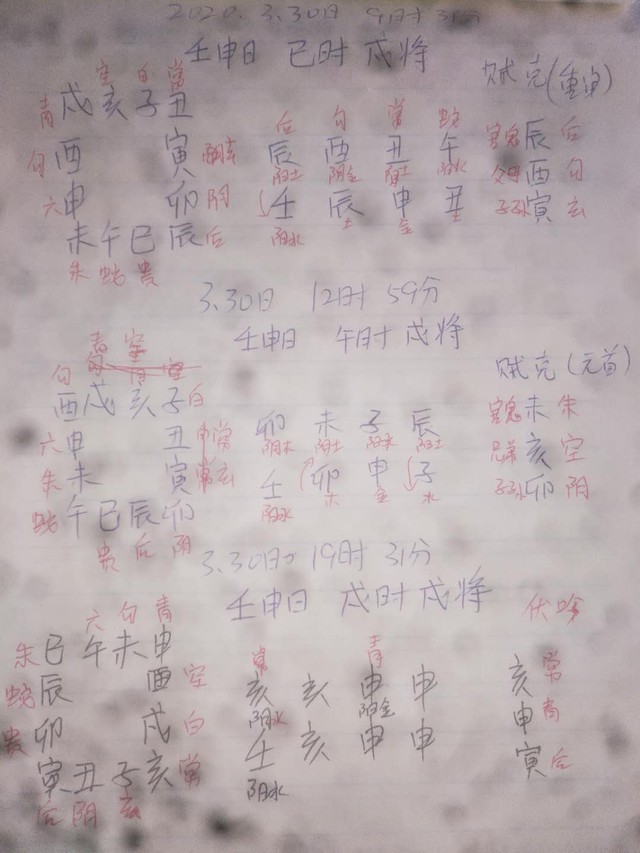 2020.3.30日 9时31分
壬申日 巳时 戌将
贼克(重审)
空 白 常
青 戌 亥 子 丑
后 勾 常 蛇
勾 酉 寅 玄 辰 酉 丑 午 官鬼 辰 后
阴土 阴金 阴土 阴火 父母 酉 勾
六 申 卯 阴 壬 辰 申 丑 子孙 寅 玄
未 午 巳 辰 后 阳水 土 金 土
朱 蛇 贵
3.30日 12时59分
壬申日 午时 戌将
贼克(元首)
青 空
勾
酉 戌 亥 子 白
卯 未 子 辰 官鬼 未 朱
六 申 丑 常 阴木 阴土 阳水 阳土
朱 未 寅 玄 壬 卯 申 子 兄弟 亥 空
蛇 午 巳 辰 卯 阳水 木 金 水 子孙 卯 阴
贵 后 阴
3.30日 19时31分
壬申日 戌时 戌将 伏吟
六 勾 青
朱 巳 午 未 申 常 青
蛇 辰 酉 空 亥 亥 申 申 亥 常
阴水 阳金
贵 卯 戌 白 壬 亥 申 申 申 青
寅 丑 子 亥 常 阳水 寅 后
后 阴 玄